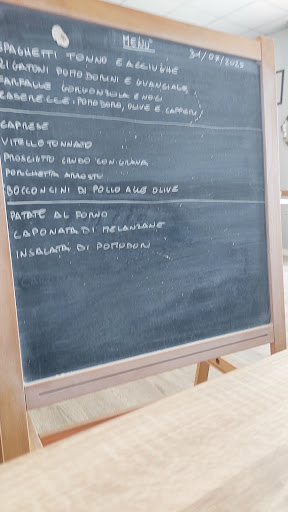 MENU'
31/07/2025
SPAGHETTI TONNO E ACCIUGHE
RIGATONI POMODORINI E GUANCIALE
FARFALLE GORGONZOLA E NOCI
CASERECCE: POMODORO, OLIVE E CAPPERI
CAPRESE
VITELLO TONNATO
PROSCIUTTO CRUDO CON GRANA
PORCHETTA ARROSTO
BOCCONCINI DI POLLO ALLE OLIVE
PATATE AL FORNO
CAPONATA DI MELANZANE
INSALATA DI POMODORI